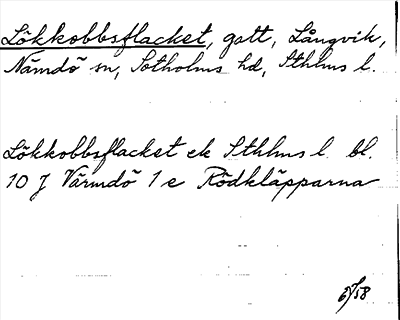 Lökkobbsflacket, gatt, Långvik,
Nämdö sn, Sotholms hd, Sthlms l.
Lökkobbsflacket ek Sthlms l. bl.
10 J Värmdö 1 e Rödkläpparna